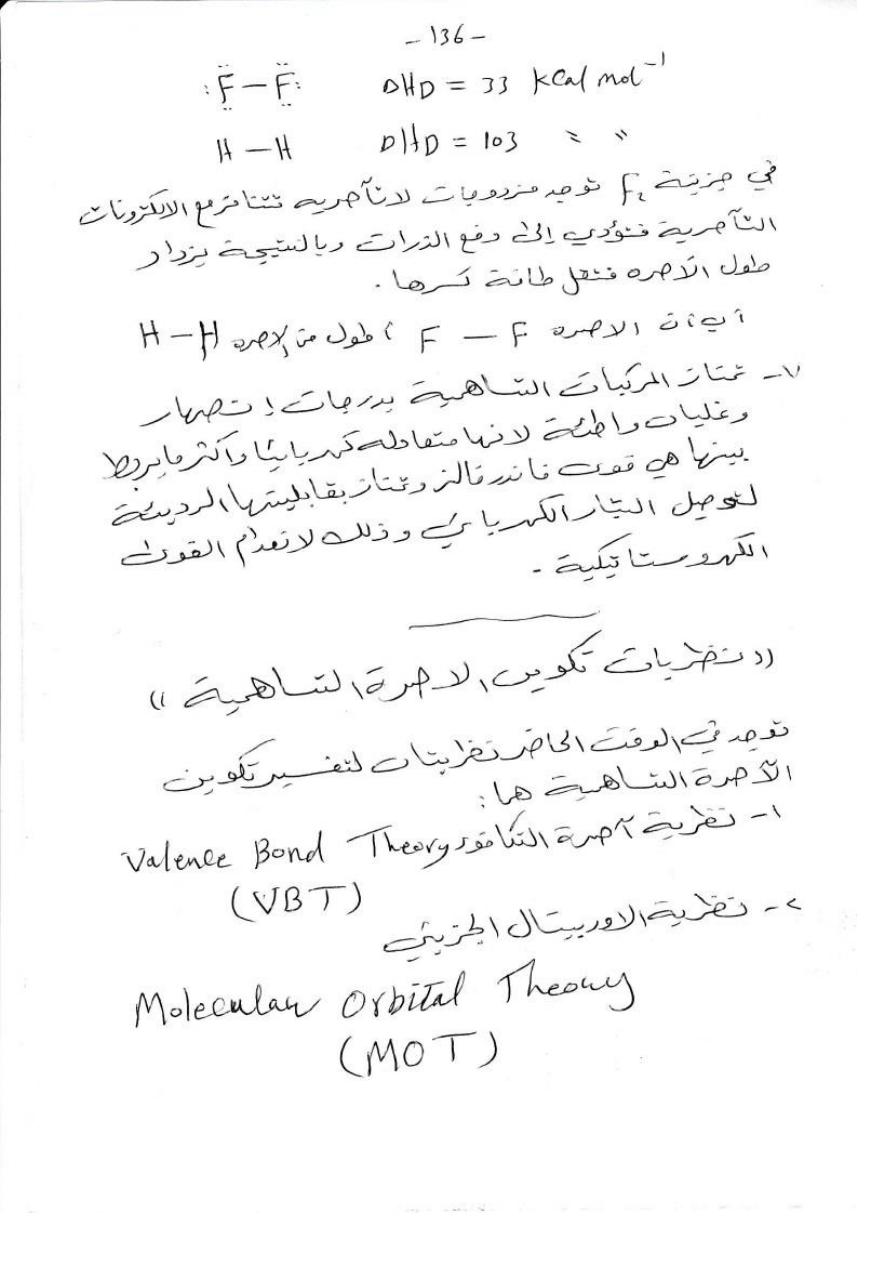 - 136 -
:F̤̈ — F̤̈: DHD = 33 kCal mol⁻¹
H — H DHD = 103 " "
في جزيئة F₂ توجد مزدوجات لاتآصريه تتنافر مع الالكترونات
التآصرية فتؤدي إلى دفع الذرات وبالنتيجة يزداد
طول الآصره فتقل طاقة كسرها .
أي ان الاصره F — F أطول من الاصره H — H
٧- تمتاز المركبات التساهمية بدرجات إنصهار
وغليان واطئة لانها متعادله كهربائيا وأكثر ما يربط
بينها هي قوى فاندرفالز وتمتاز بقابليتها الرديئة
لتوصيل التيار الكهربائي وذلك لانعدام القوى
الكهروستاتيكية .
(( نظريات تكوين الاصرة التساهمية ))
توجد في الوقت الحاضر نظريتان لتفسير تكوين
الآصرة التساهمية هما :
١- نظرية آصرة التكافؤ Valence Bond Theory
(VBT)
٢- نظرية الاوربيتال الجزيئي
Molecular Orbital Theory
(MOT)